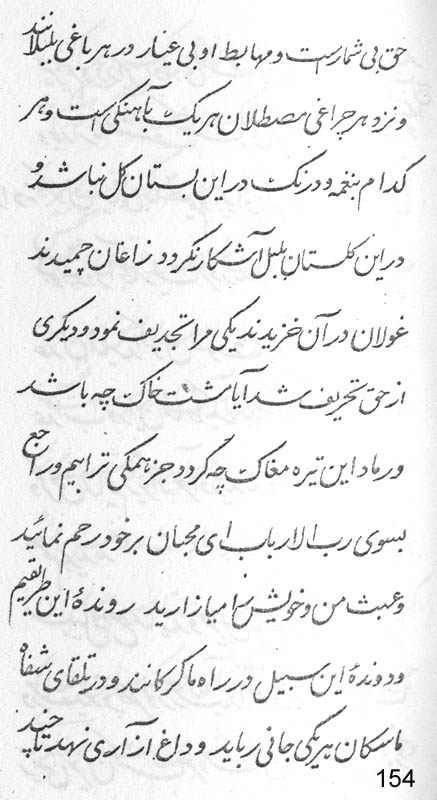 حق بی شمار است و مهابط او بی عیار در هر باغی بلبلانند
و نزد هر چراغی مصطلان هر یک بآهنگی است و هر
کدام بنغمه و درنک در این بستان کل نباشد و
در این کلستان بلبل آشکار نکردد زاغان چمیدند
غولان در آن خزیدند یکی مرا تجدیف نمود و دیگری
از حق تحریف شد آیا مشت خاک چه باشد
و رماد این تیره مغاک چه گردد جز همگی تراییم و راجع
بسوی رب الارباب ای محبان بر خود رحم نمائید
و عبث من و خویش را میازارید روندهٔ این طریقیم
و دوندهٔ این سبیل در راه ماکرکانند و در تلقای شفاه
ماسکان هر یکی جانی رباید و داغ از آری نهد تا چند
154